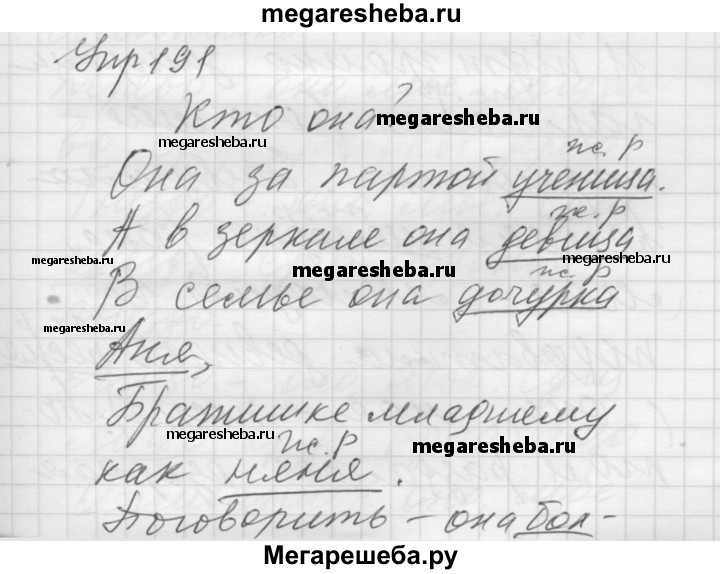 megaresheba.ru
Упр 191
Кто она?
megaresheba.ru
megaresheba.ru
ж. р
Она за партой ученица.
ж. р
А в зеркале она девица
megaresheba.ru
megaresheba.ru
ж. р
В семье она дочурка
megaresheba.ru
Аня,
Братишке младшему
megaresheba.ru
ж. р
megaresheba.ru
как няня.
Поговорить – она бол-
Мегарешеба.ру